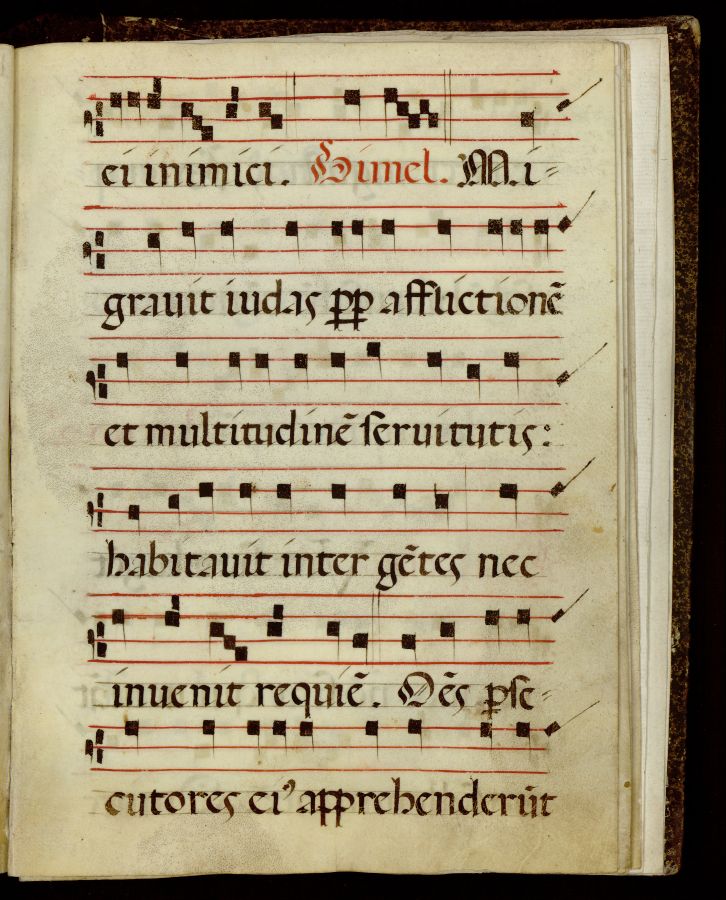 ei inimici. Gimel. Mi=
grauit iudas ꝓꝑ afflictionē
et multitudinē seruitutis:
habitauit inter gētes nec
inuenit requiē. Oēs ꝑse=
cutores eiꝰ apprehenderūt